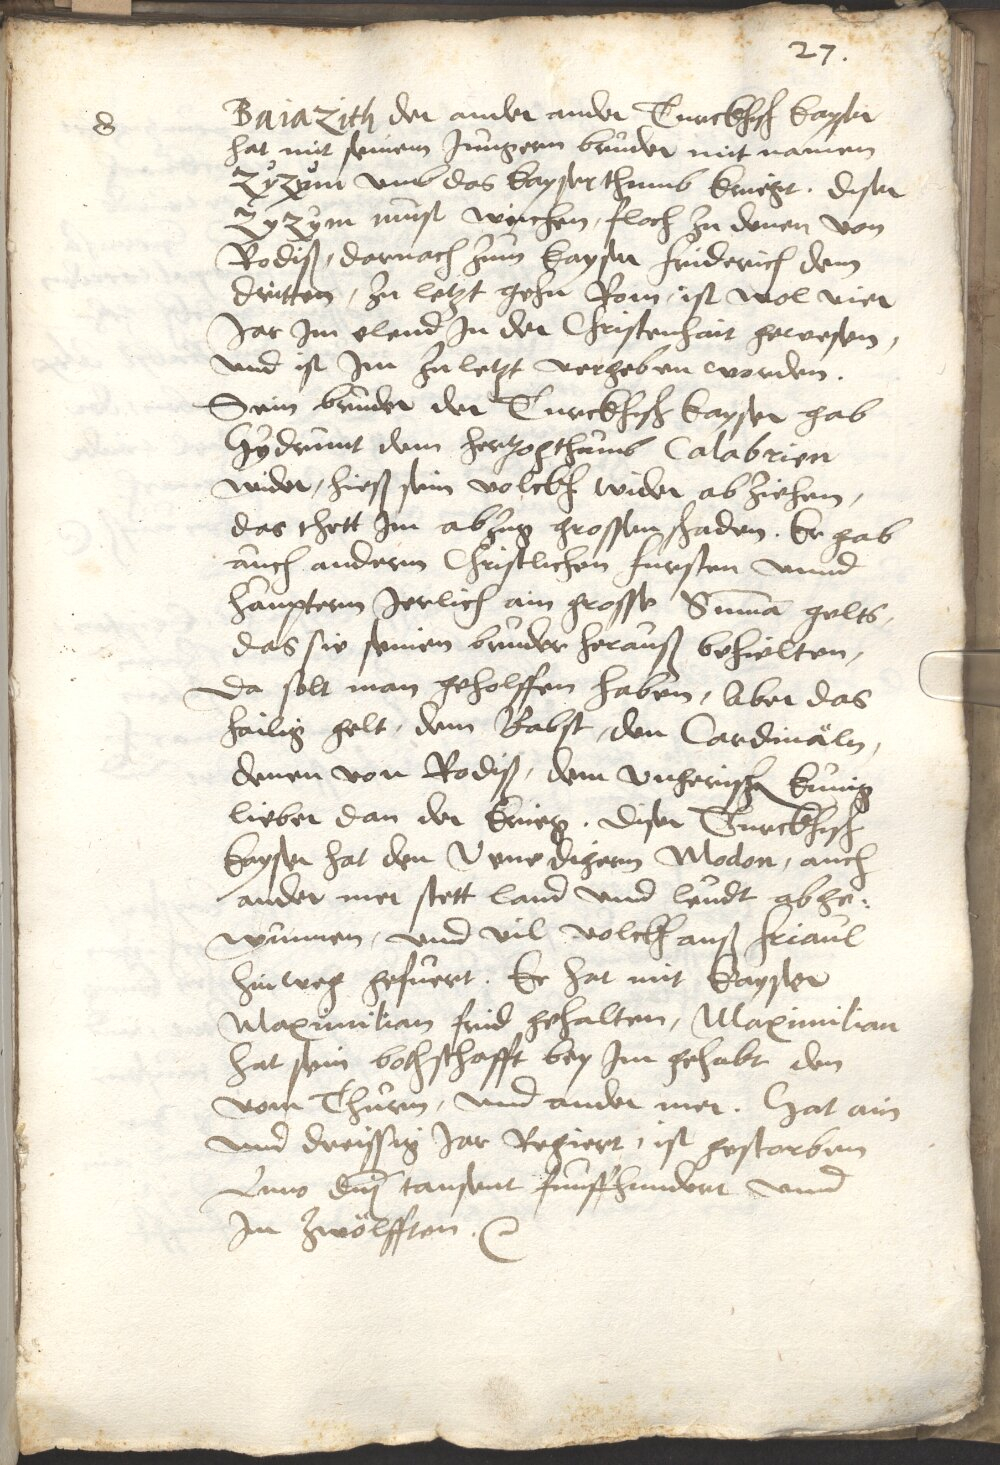 27.
8
Baiazith der ander ander Turckhisch kayser
hat mit seinem Jungern bruder mit namen
Zyzym umb das kayserthumb kriegt. diser
Zyzym must weichen, floch zu denen von
Rodiß, darnach zum kayser friderich dem
dritten, zu letzt gehn Rom, ist wol vier
Jar im elend In der Christenhait gewesen,
und ist Im zu letzt vergeben worden.
Sein bruder der Turckhisch kayser gab
Hydrunt dem hertzogthumb Calabrien
wider, hieß sein volckh wider abziehen,
das thett Im abzug grossen schaden. Er gab
auch anderm Christlichen fursten unnd
haupterm Jerlich ain grosse Suma gelts,
das sie seinen bruder herauß behielten,
Da solt man geholffen haben, Aber das
hailig gelt, dem Babst, den Cardinäln,
denen von Rodiß, dem ungerisch kunig
lieber dan der krieg. diser Turckhisch
kayser hat den Venedigern Modon, auch
ander mer stett land und leudt abge,
wunnen, und vil volckh auß friaul
hinweg gefuert. Er hat mit kayser
Maximilian frid gehalten, Maximilian
hat sein bothschafft bey Im gehabt den
vom Thurm, und ander mer. Hat ain
und dreissig Jar Regiert, ist gestorben
Anno dni tausent funffhundert unnd
Im zwölfften.